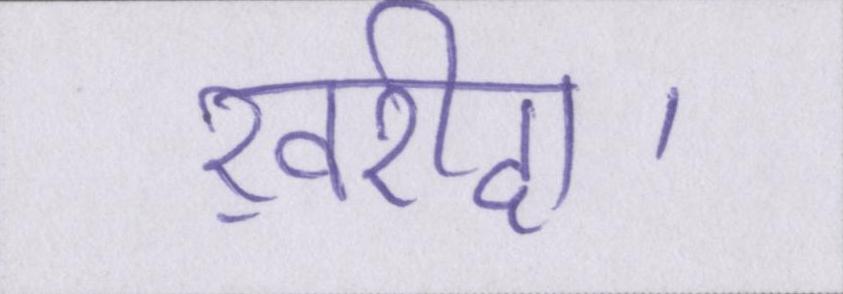 ख़रीदा।